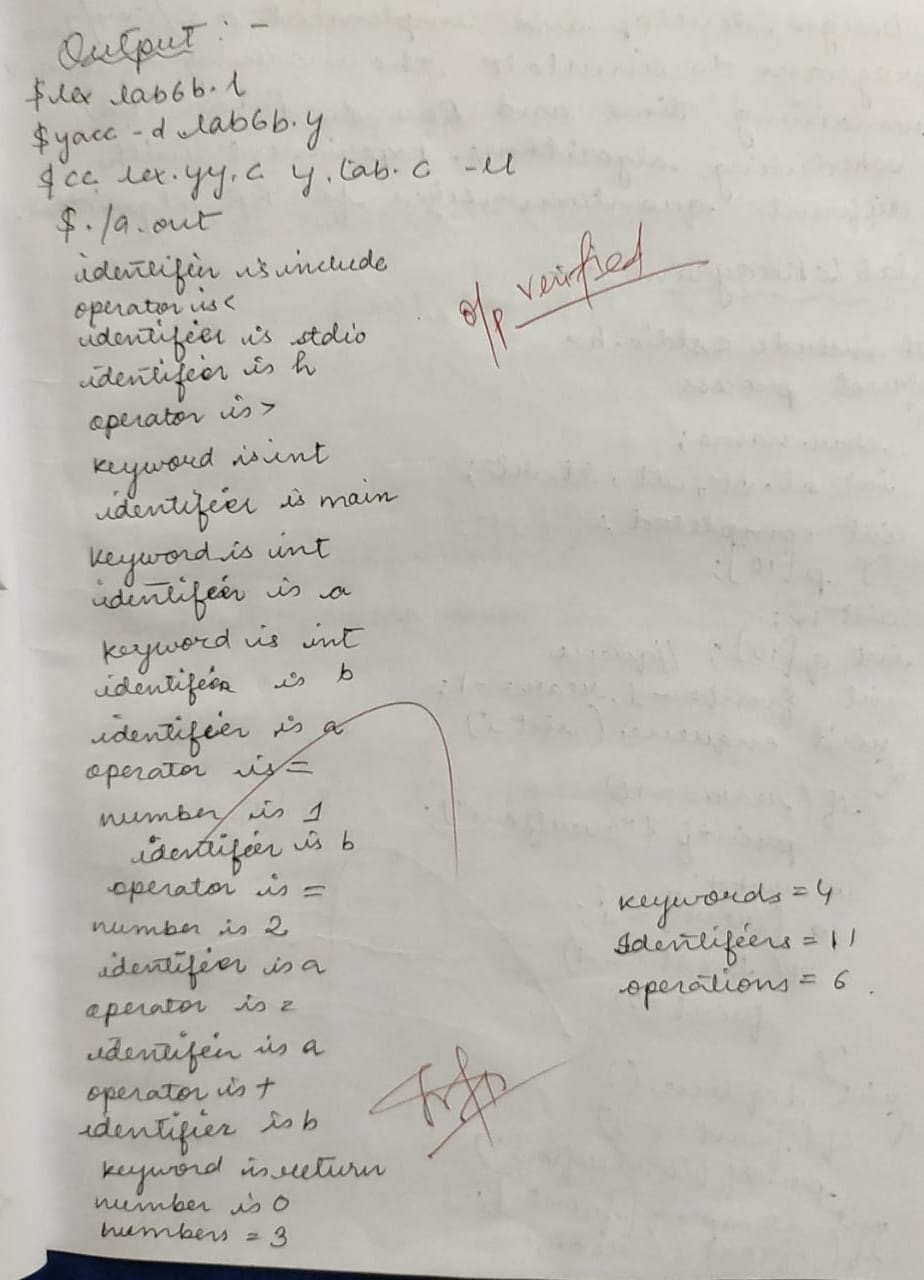 Output : -
$lex lab6b.l
$yacc -d lab6b.y
$cc lex.yy.c y.tab.c -ll
$./a.out
identifier is include
operator is <
identifier is stdio
identifier is h
operator is >
keyword is int
identifier is main
keyword is int
identifier is a
keyword is int
identifier is b
identifier is a
operator is =
number is 1
identifier is b
operator is =
number is 2
identifier is a
operator is =
identifier is a
operator is +
identifier is b
keyword is return
number is 0
numbers = 3
o/p verified
keywords = 4
Identifiers = 11
operations = 6 .